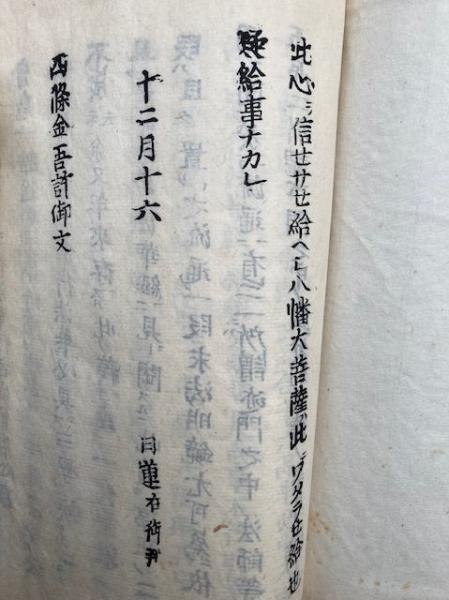 此心ヲ信セサセ給八幡大菩薩ハ此ニワタラセ給也
疑給事ナカレ
十二月十六 日蓮在御判
四條金吾許御文